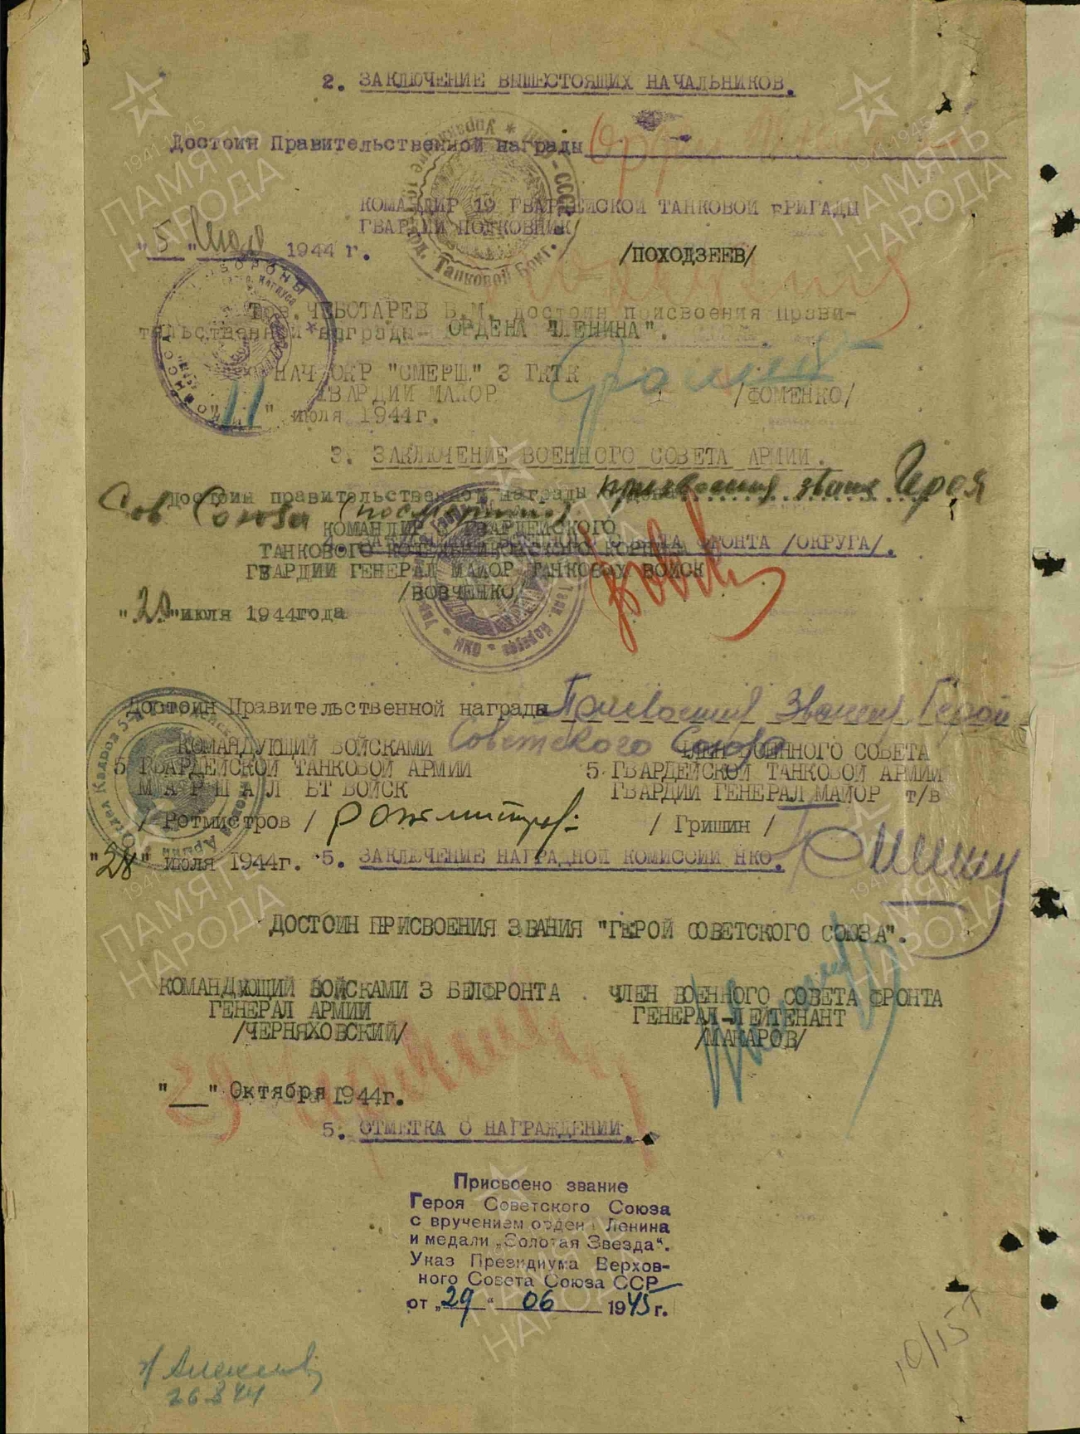 2. ЗАКЛЮЧЕНИЕ ВЫШЕСТОЯЩИХ НАЧАЛЬНИКОВ.
Достоин Правительственной награды
КОМАНДИР 19 ГВАРДЕЙСКОЙ ТАНКОВОЙ БРИГАДЫ
ГВАРДИИ ПОЛКОВНИК
"5" Июля 1944 г. /ПОХОДЗЕЕВ/
Тов. ЧЕБОТАРЕВ В.М. достоин присвоения прави-
тельственной награды- ОРДЕНА "ЛЕНИНА".
НАЧ ОКР "СМЕРШ" 3 ГКТК
ГВАРДИИ МАЙОР /ФОМЕНКО/
"11" июля 1944г.
3. ЗАКЛЮЧЕНИЕ ВОЕННОГО СОВЕТА АРМИИ.
достоин правительственной награды присвоения звания Героя
Сов Союза (посмертно)
КОМАНДИР 3 ГВАРДЕЙСКОГО
ФРОНТА /ОКРУГА/.
ТАНКОВОГО КОТЕЛЬНИКОВСКОГО КОРПУСА
ГВАРДИИ ГЕНЕРАЛ МАЙОР ТАНКОВЫХ ВОЙСК
/ВОВЧЕНКО/
"20" июля 1944года
Достоин Правительственной награды Присвоения Звания Героя
Советского Союза
КОМАНДУЮЩИЙ ВОЙСКАМИ ЧЛЕН ВОЕННОГО СОВЕТА
5 ГВАРДЕЙСКОЙ ТАНКОВОЙ АРМИИ 5 ГВАРДЕЙСКОЙ ТАНКОВОЙ АРМИИ
МАРШАЛ БТ ВОЙСК ГВАРДИИ ГЕНЕРАЛ МАЙОР т/в
/ Ротмистров / Ротмистров / Гришин /
"28" июля 1944г. 5. ЗАКЛЮЧЕНИЕ НАГРАДНОЙ КОМИССИИ НКО.
ДОСТОИН ПРИСВОЕНИЯ ЗВАНИЯ "ГЕРОЙ СОВЕТСКОГО СОЮЗА".
КОМАНДУЮЩИЙ ВОЙСКАМИ 3 БЕЛФРОНТА ЧЛЕН ВОЕННОГО СОВЕТА ФРОНТА
ГЕНЕРАЛ АРМИИ ГЕНЕРАЛ-ЛЕЙТЕНАНТ
/ЧЕРНЯХОВСКИЙ/ /МАКАРОВ/
"__" Октября 1944г.
5. ОТМЕТКА О НАГРАЖДЕНИИ.
Присвоено звание
Героя Советского Союза
с вручением орден Ленина
и медали „Золотая Звезда“.
Указ Президиума Верхов-
ного Совета Союза ССР
от „29“ 06 1945 г.
10/15т
26 8 44
ПАМЯТЬ
НАРОДА
ПАМЯТЬ
НАРОДА
ПАМЯТЬ
НАРОДА
ПАМЯТЬ
НАРОДА
ПАМЯТЬ
НАРОДА
ПАМЯТЬ
НАРОДА